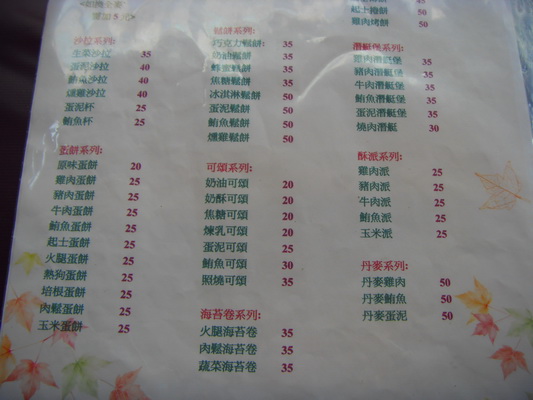 沙拉系列:
生菜沙拉 35
蛋泥沙拉 40
鮪魚沙拉 40
燻雞沙拉 40
蛋泥杯 25
鮪魚杯 25
蛋餅系列:
原味蛋餅 20
雞肉蛋餅 25
豬肉蛋餅 25
牛肉蛋餅 25
鮪魚蛋餅 25
起士蛋餅 25
火腿蛋餅 25
熱狗蛋餅 25
培根蛋餅 25
肉鬆蛋餅 25
玉米蛋餅 25
鬆餅系列:
巧克力鬆餅: 35
奶油鬆餅 35
蜂蜜鬆餅 35
焦糖鬆餅 35
冰淇淋鬆餅 50
蛋泥鬆餅 50
鮪魚鬆餅 50
燻雞鬆餅 50
可頌系列:
奶油可頌 20
奶酥可頌 20
焦糖可頌 20
煉乳可頌 20
蛋泥可頌 25
鮪魚可頌 30
照燒可頌 35
海苔卷系列:
火腿海苔卷 35
肉鬆海苔卷 35
蔬菜海苔卷 35
50
起士烤餅 50
雞肉烤餅 50
潛艇堡系列:
雞肉潛艇堡 35
豬肉潛艇堡 35
牛肉潛艇堡 35
鮪魚潛艇堡 35
蛋泥潛艇堡 35
燒肉潛艇 30
酥派系列:
雞肉派 25
豬肉派 25
牛肉派 25
鮪魚派 25
玉米派 25
丹麥系列:
丹麥雞肉 50
丹麥鮪魚 50
丹麥蛋泥 50